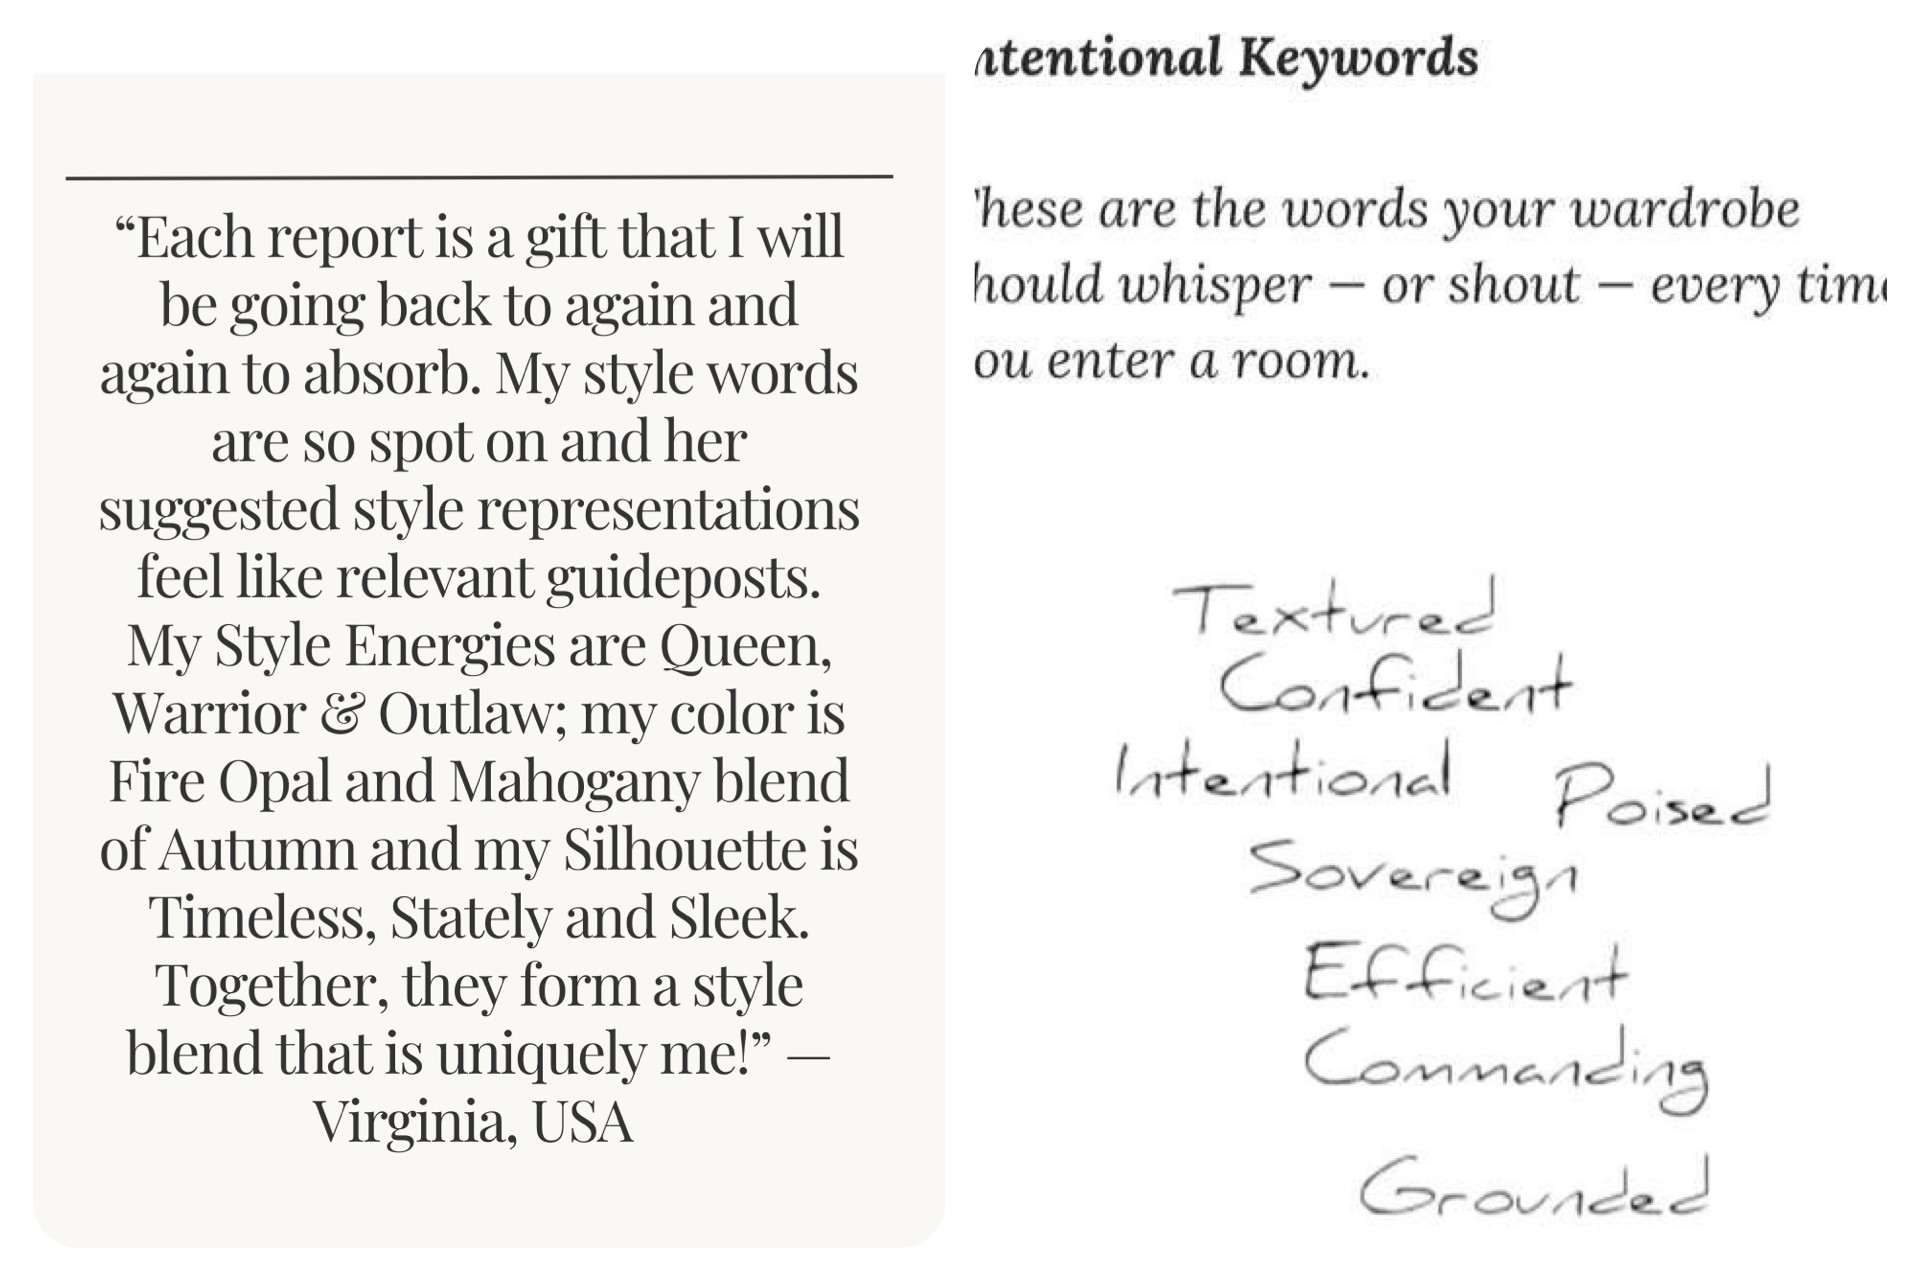 “Each report is a gift that I will
be going back to again and
again to absorb. My style words
are so spot on and her
suggested style representations
feel like relevant guideposts.
My Style Energies are Queen,
Warrior & Outlaw; my color is
Fire Opal and Mahogany blend
of Autumn and my Silhouette is
Timeless, Stately and Sleek.
Together, they form a style
blend that is uniquely me!” —
Virginia, USA
ntentional Keywords
hese are the words your wardrobe
hould whisper — or shout — every time
ou enter a room.
Textured
Confident
Intentional
Poised
Sovereign
Efficient
Commanding
Grounded